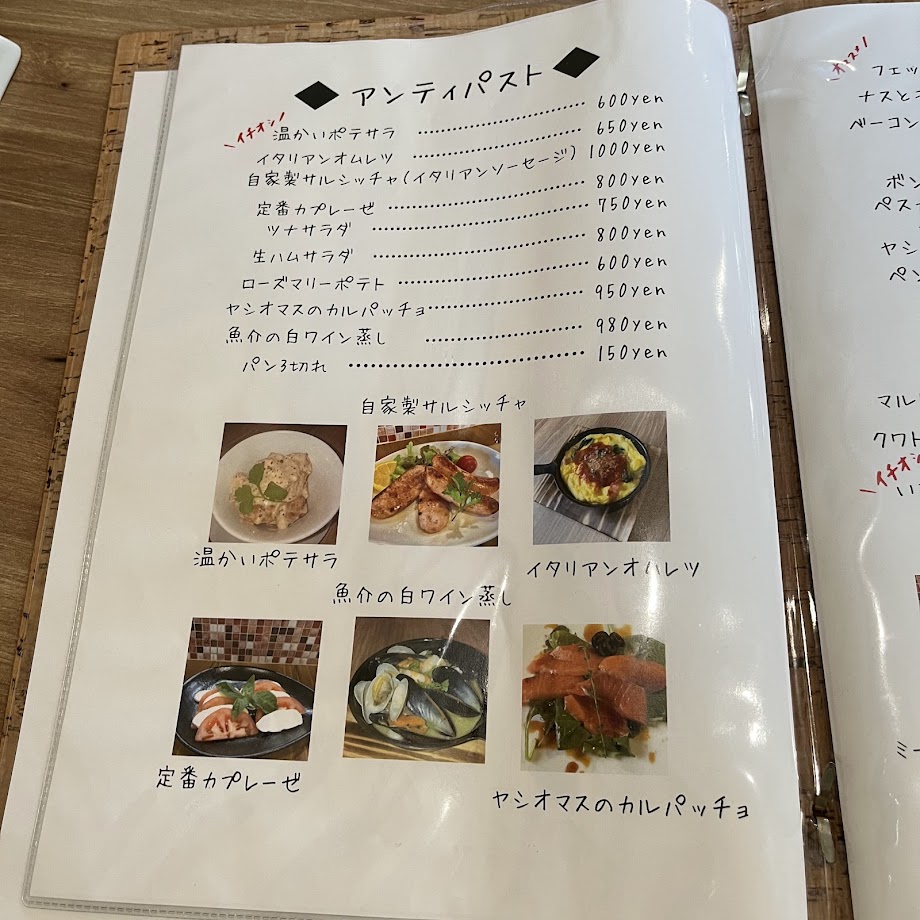 ◆アンティパスト◆
\イチオシ/
温かいポテサラ ・・・・・・ 600yen
イタリアンオムレツ ・・・・・・ 650yen
自家製サルシッチャ(イタリアンソーセージ) 1000yen
定番カプレーゼ ・・・・・・ 800yen
ツナサラダ ・・・・・・ 750yen
生ハムサラダ ・・・・・・ 800yen
ローズマリーポテト ・・・・・・ 600yen
ヤシオマスのカルパッチョ ・・・・・・ 950yen
魚介の白ワイン蒸し ・・・・・・ 980yen
パン3切れ ・・・・・・ 150yen
自家製サルシッチャ
温かいポテサラ
イタリアンオムレツ
魚介の白ワイン蒸し
定番カプレーゼ
ヤシオマスのカルパッチョ
\オススメ/
フェッ
ナスと
ベーコン
ボン
ペス
ヤシ
ペン
マル
クワト
\イチオシ
い
ミー